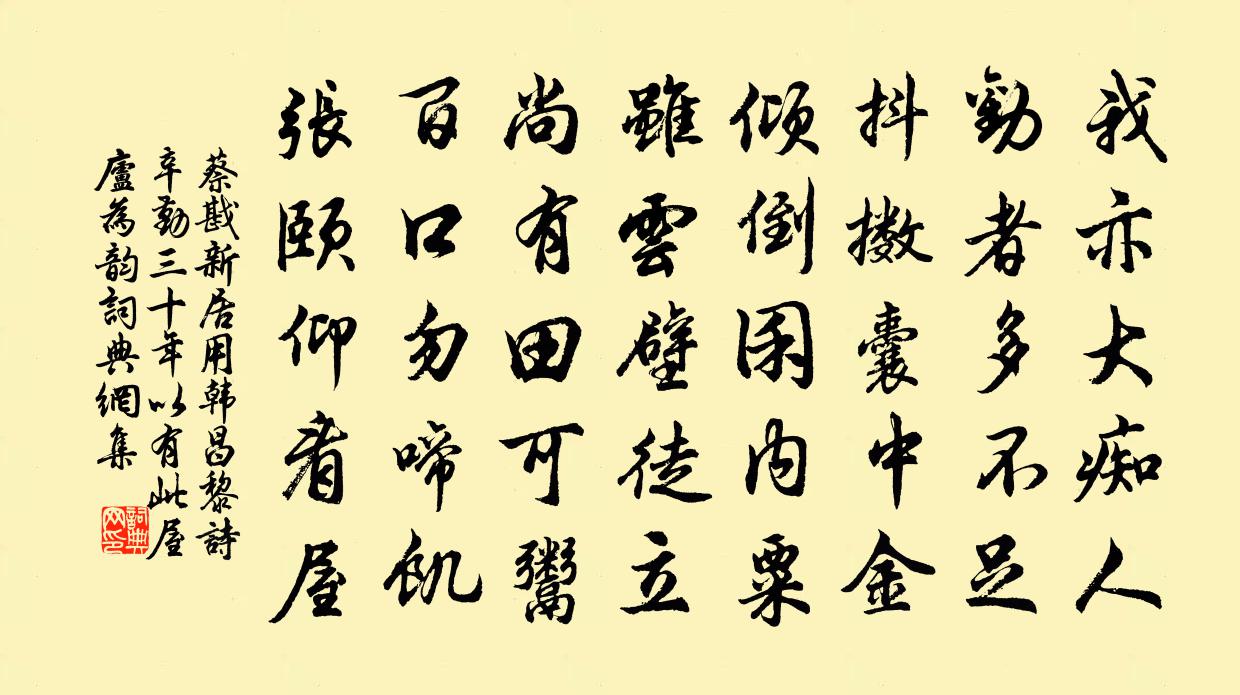 我亦大痴人
勸者多不足
抖擻囊中金
傾倒囷內粟
雖雲壁徒立
尚有田可鬻
百口勿啼飢
張頤仰看屋
蔡戡新居用韩昌黎詩
辛勤三十年以有此屋
廬為韵詞典網集
詞典网印